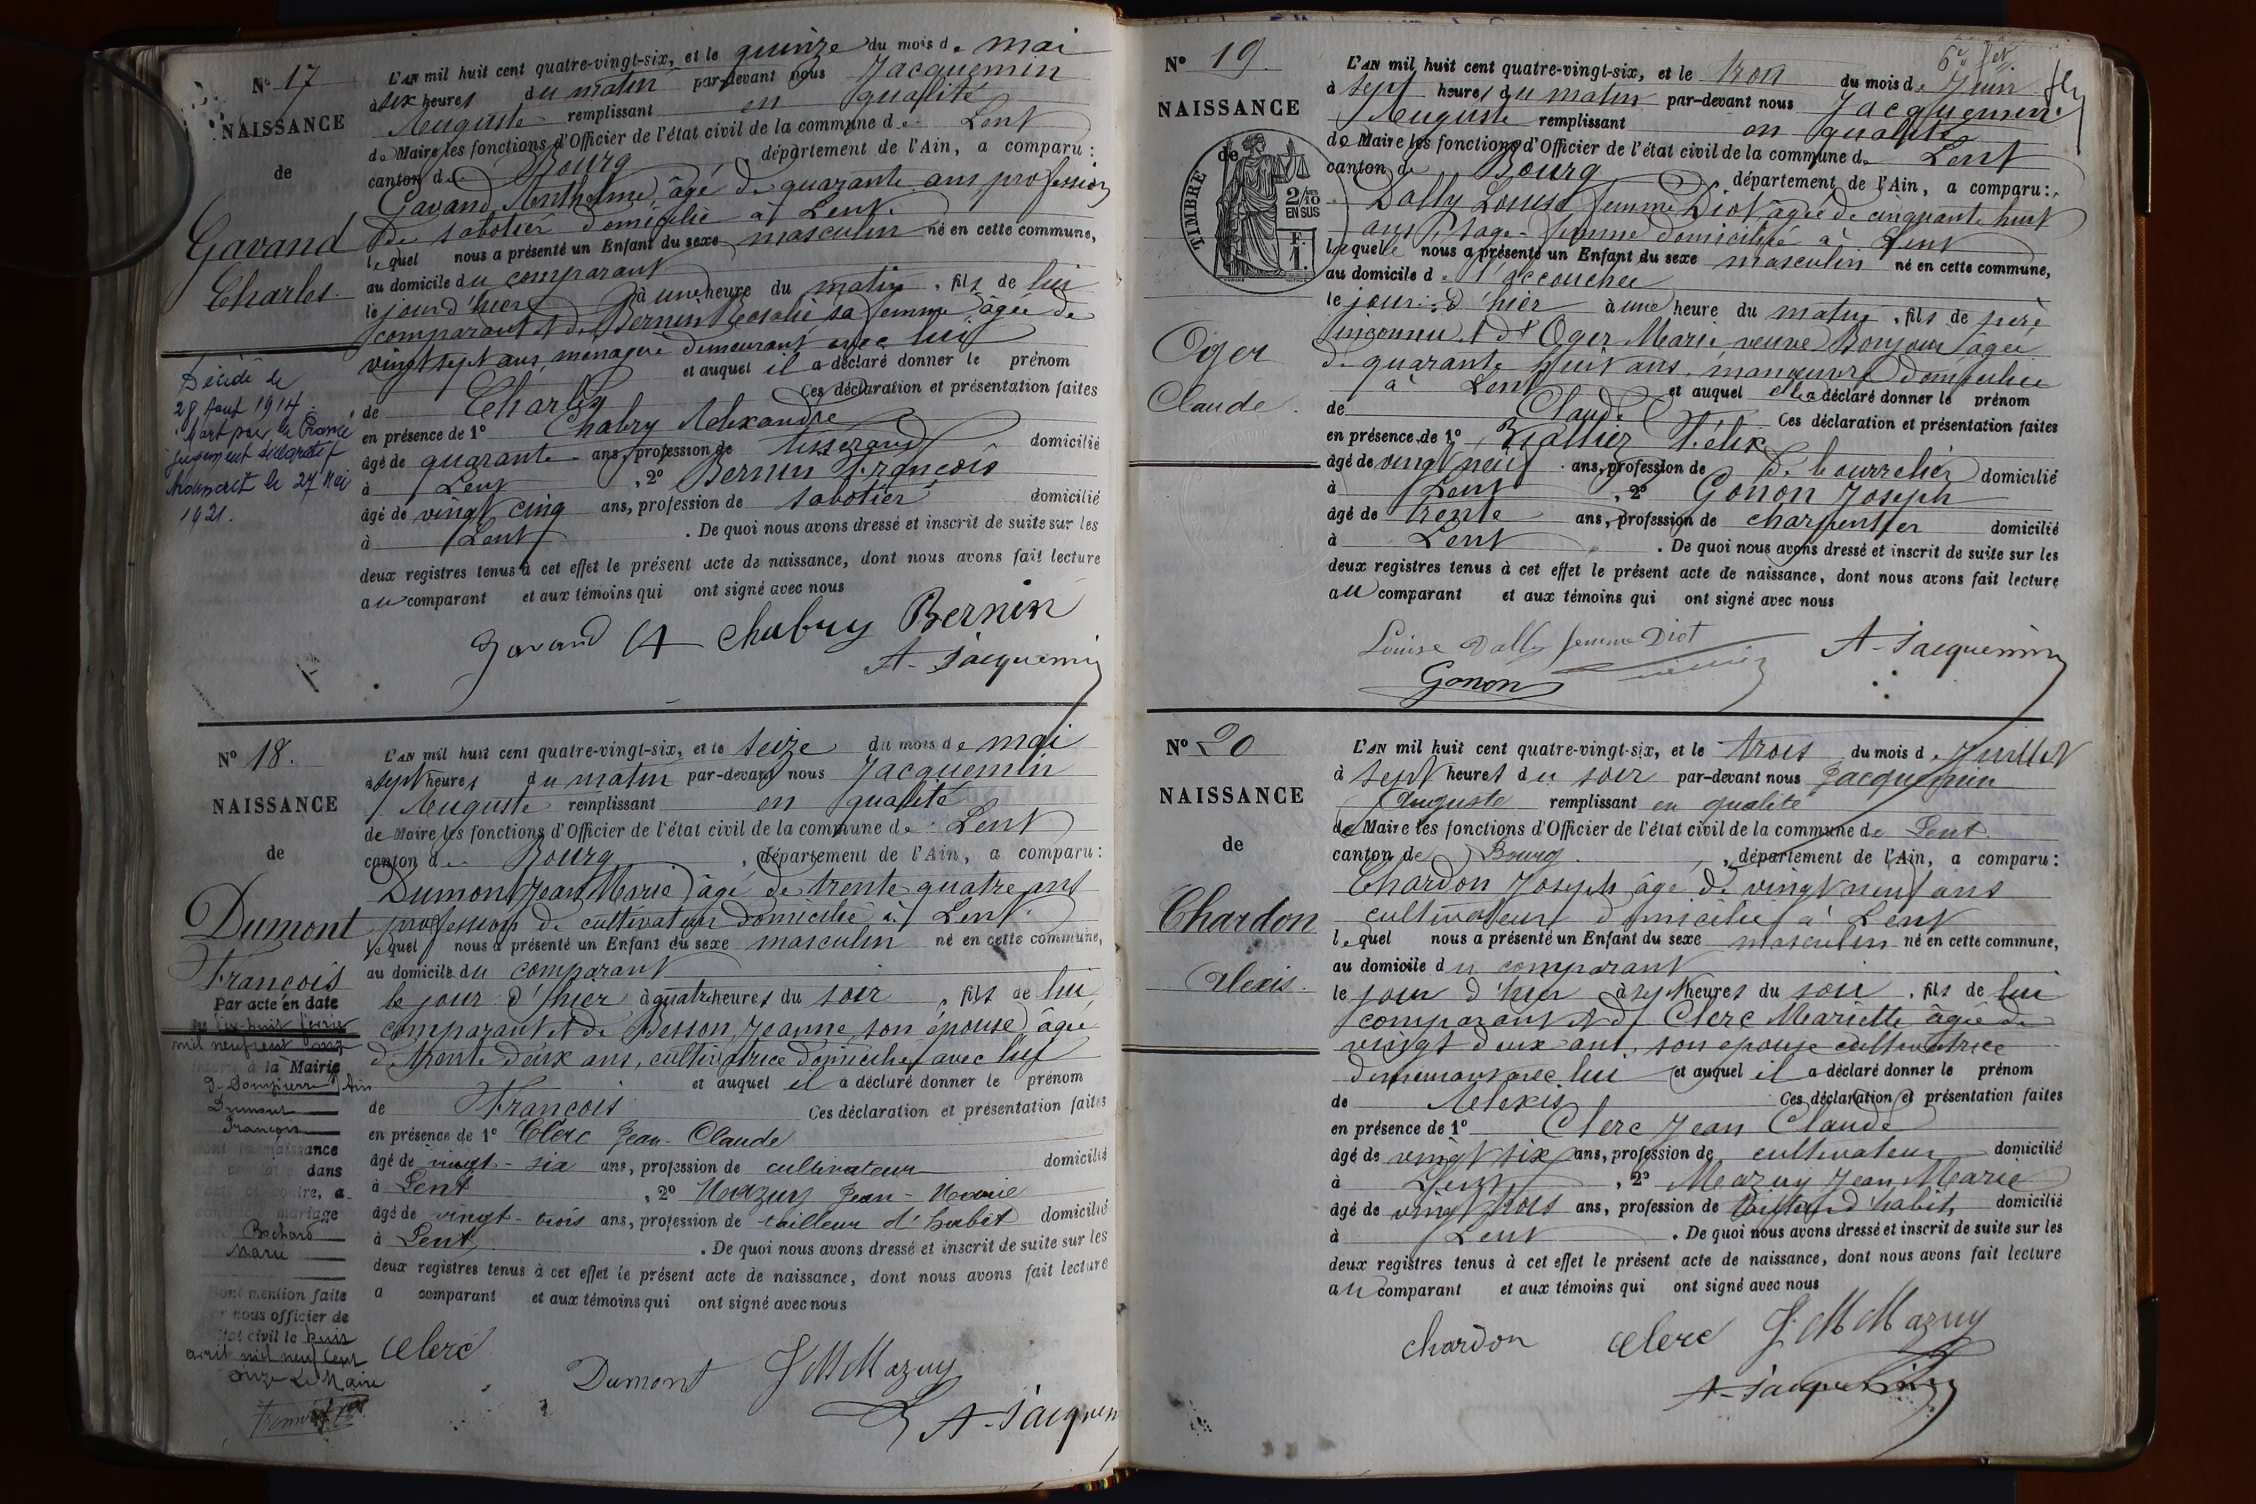 N° 17
NAISSANCE
de
Gavand
Charles
Décédé le
28 Aout 1914
Mort pour la France
jugement déclaratif
transcrit le 27 Mai
1921.
L'AN mil huit cent quatre-vingt-six, et le quinze du mois de mai
à six heures du matin par-devant nous Jacquemin
Auguste remplissant en qualité
de Maire les fonctions d'Officier de l'état civil de la commune de Lent
canton de Bourg, département de l'Ain, a comparu :
Gavand Anthelme âgé de quarante ans profession
de sabotier domicilié à Lent.
lequel nous a présenté un Enfant du sexe masculin né en cette commune,
au domicile du comparant
le jour d'hier à une heure du matin, fils de lui
comparant et de Bernin Rosalie sa femme âgée de
vingt sept ans, ménagère demeurant avec lui
et auquel il a déclaré donner le prénom
de Charles Ces déclaration et présentation faites
en présence de 1° Chabry Alexandre
âgé de quarante ans, profession de tisserand domicilié
à Lent, 2° Bernin François
âgé de vingt cinq ans, profession de sabotier domicilié
à Lent. De quoi nous avons dressé et inscrit de suite sur les
deux registres tenus à cet effet le présent acte de naissance, dont nous avons fait lecture
au comparant et aux témoins qui ont signé avec nous
Gavand A Chabry Bernin
A. Jacquemin
N° 18.
NAISSANCE
de
Dumont
François
Par acte en date
du dix huit février
mil neuf cent onze
à la Mairie
de Dompierre Ain
Dumont
François
naissance
dans
mariage
Bochard
Marie
mention faite
nous officier de
état civil le huit
avril mil neuf cent
onze Le Maire
L'AN mil huit cent quatre-vingt-six, et le seize du mois de mai
à sept heures du matin par-devant nous Jacquemin
Auguste remplissant en qualité
de Maire les fonctions d'Officier de l'état civil de la commune de Lent
canton de Bourg, département de l'Ain, a comparu :
Dumont Jean Marie âgé de trente quatre ans
profession de cultivateur domicilié à Lent.
lequel nous a présenté un Enfant du sexe masculin né en cette commune,
au domicile du comparant
le jour d'hier à quatre heures du soir, fils de lui
comparant et de Besson Jeanne son épouse, âgée
de trente deux ans, cultivatrice domiciliée avec lui
et auquel il a déclaré donner le prénom
de François Ces déclaration et présentation faites
en présence de 1° Clerc Jean-Claude
âgé de vingt-six ans, profession de cultivateur domicilié
à Lent, 2° Mazuy Jean-Marie
âgé de vingt-trois ans, profession de tailleur d'habit domicilié
à Lent. De quoi nous avons dressé et inscrit de suite sur les
deux registres tenus à cet effet le présent acte de naissance, dont nous avons fait lecture
a comparant et aux témoins qui ont signé avec nous
Clerc
Dumont J M Mazuy
A. Jacquem
N° 19
NAISSANCE
de
TIMBRE
2/10
EN SUS
F.
1.
Oger
Claude.
L'AN mil huit cent quatre-vingt-six, et le trois du mois de Juin
à sept heures du matin par-devant nous Jacquemin
Auguste remplissant en qualité
de Maire les fonctions d'Officier de l'état civil de la commune de Lent
canton de Bourg département de l'Ain, a comparu :
Dally Louise femme Diot âgée de cinquante huit
ans Sage-femme domiciliée à Lent
laquelle nous a présenté un Enfant du sexe masculin né en cette commune,
au domicile de l'accouchée
le jour d'hier à une heure du matin, fils de père
inconnu et de Oger Marie veuve Bonjour âgée
de quarante huit ans, manœuvre domiciliée
à Lent et auquel elle a déclaré donner le prénom
de Claude Ces déclaration et présentation faites
en présence de 1° Félix
âgé de vingt neuf ans, profession de bourrelier domicilié
à Lent, 2° Gonon Joseph
âgé de trente ans, profession de charpentier domicilié
à Lent. De quoi nous avons dressé et inscrit de suite sur les
deux registres tenus à cet effet le présent acte de naissance, dont nous avons fait lecture
au comparant et aux témoins qui ont signé avec nous
Louise Dally femme Diot
A. Jacquemin
Gonon
N° 20
NAISSANCE
de
Chardon
Alexis.
L'AN mil huit cent quatre-vingt-six, et le trois du mois de Juillet
à sept heures du soir par-devant nous Jacquemin
Auguste remplissant en qualité
de Maire les fonctions d'Officier de l'état civil de la commune de Lent
canton de Bourg, département de l'Ain, a comparu :
Chardon Joseph âgé de vingt neuf ans
cultivateur domicilié à Lent
lequel nous a présenté un Enfant du sexe masculin né en cette commune,
au domicile du comparant
le jour d'hier à sept heures du soir, fils de lui
comparant et de Clerc Mariette âgée de
vingt deux ans, son épouse cultivatrice
demeurant avec lui et auquel il a déclaré donner le prénom
de Alexis Ces déclaration et présentation faites
en présence de 1° Clerc Jean Claude
âgé de vingt six ans, profession de cultivateur domicilié
à Lent, 2° Mazuy Jean Marie
âgé de vingt trois ans, profession de tailleur d'habits domicilié
à Lent. De quoi nous avons dressé et inscrit de suite sur les
deux registres tenus à cet effet le présent acte de naissance, dont nous avons fait lecture
au comparant et aux témoins qui ont signé avec nous
Chardon Clerc J. M Mazuy
A. Jacquemin